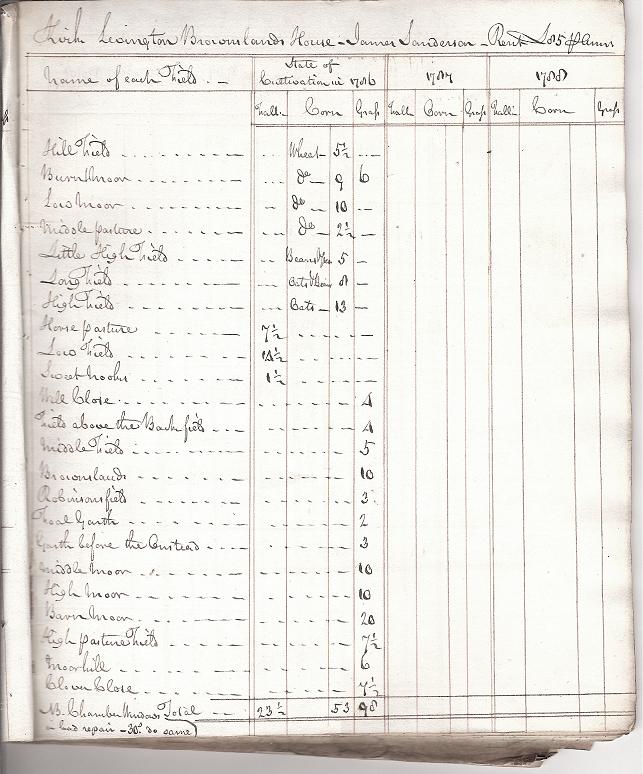 Kirk Levington Brownslands House - James Sanderson - Rent £185 p Ann
Name of each Field. - State of Cultivation in 1786 1787 1788
Fall: Corn Grass Fall: Corn Grass Fall: Corn Grass
Hill Field Wheat 5½
Burnt Moor do 9 6
Low Moor do 10
Middle pasture do 2½
Little High Field 5
Long Field 8
High Field Oats 13
Horse pasture 7½
Low Field 14½
Sweet Nooks 1½
Well Close 4
Field above the Backfield 4
Middle Field 5
Brownslands 10
Robinsonsfield 3
Foal Garth 2
Garth before the Onstead 3
Middle Moor 10
High Moor 10
Barn Moor 20
High pasture Field 7½
Moorhill 6
Clover Close 7½
NB. Chamber Windows Total 23½ 53 98
in bad repair - 30s. do same